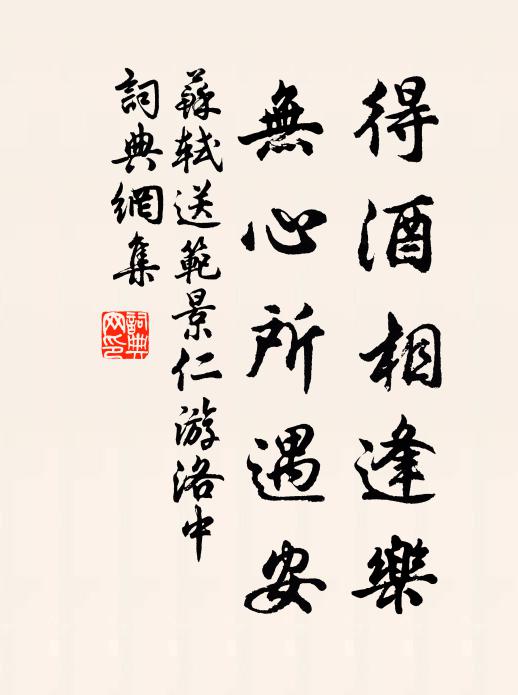 得酒相逢樂
無心所遇安
蘇軾送範景仁游洛中
詞典網集
詞典网印